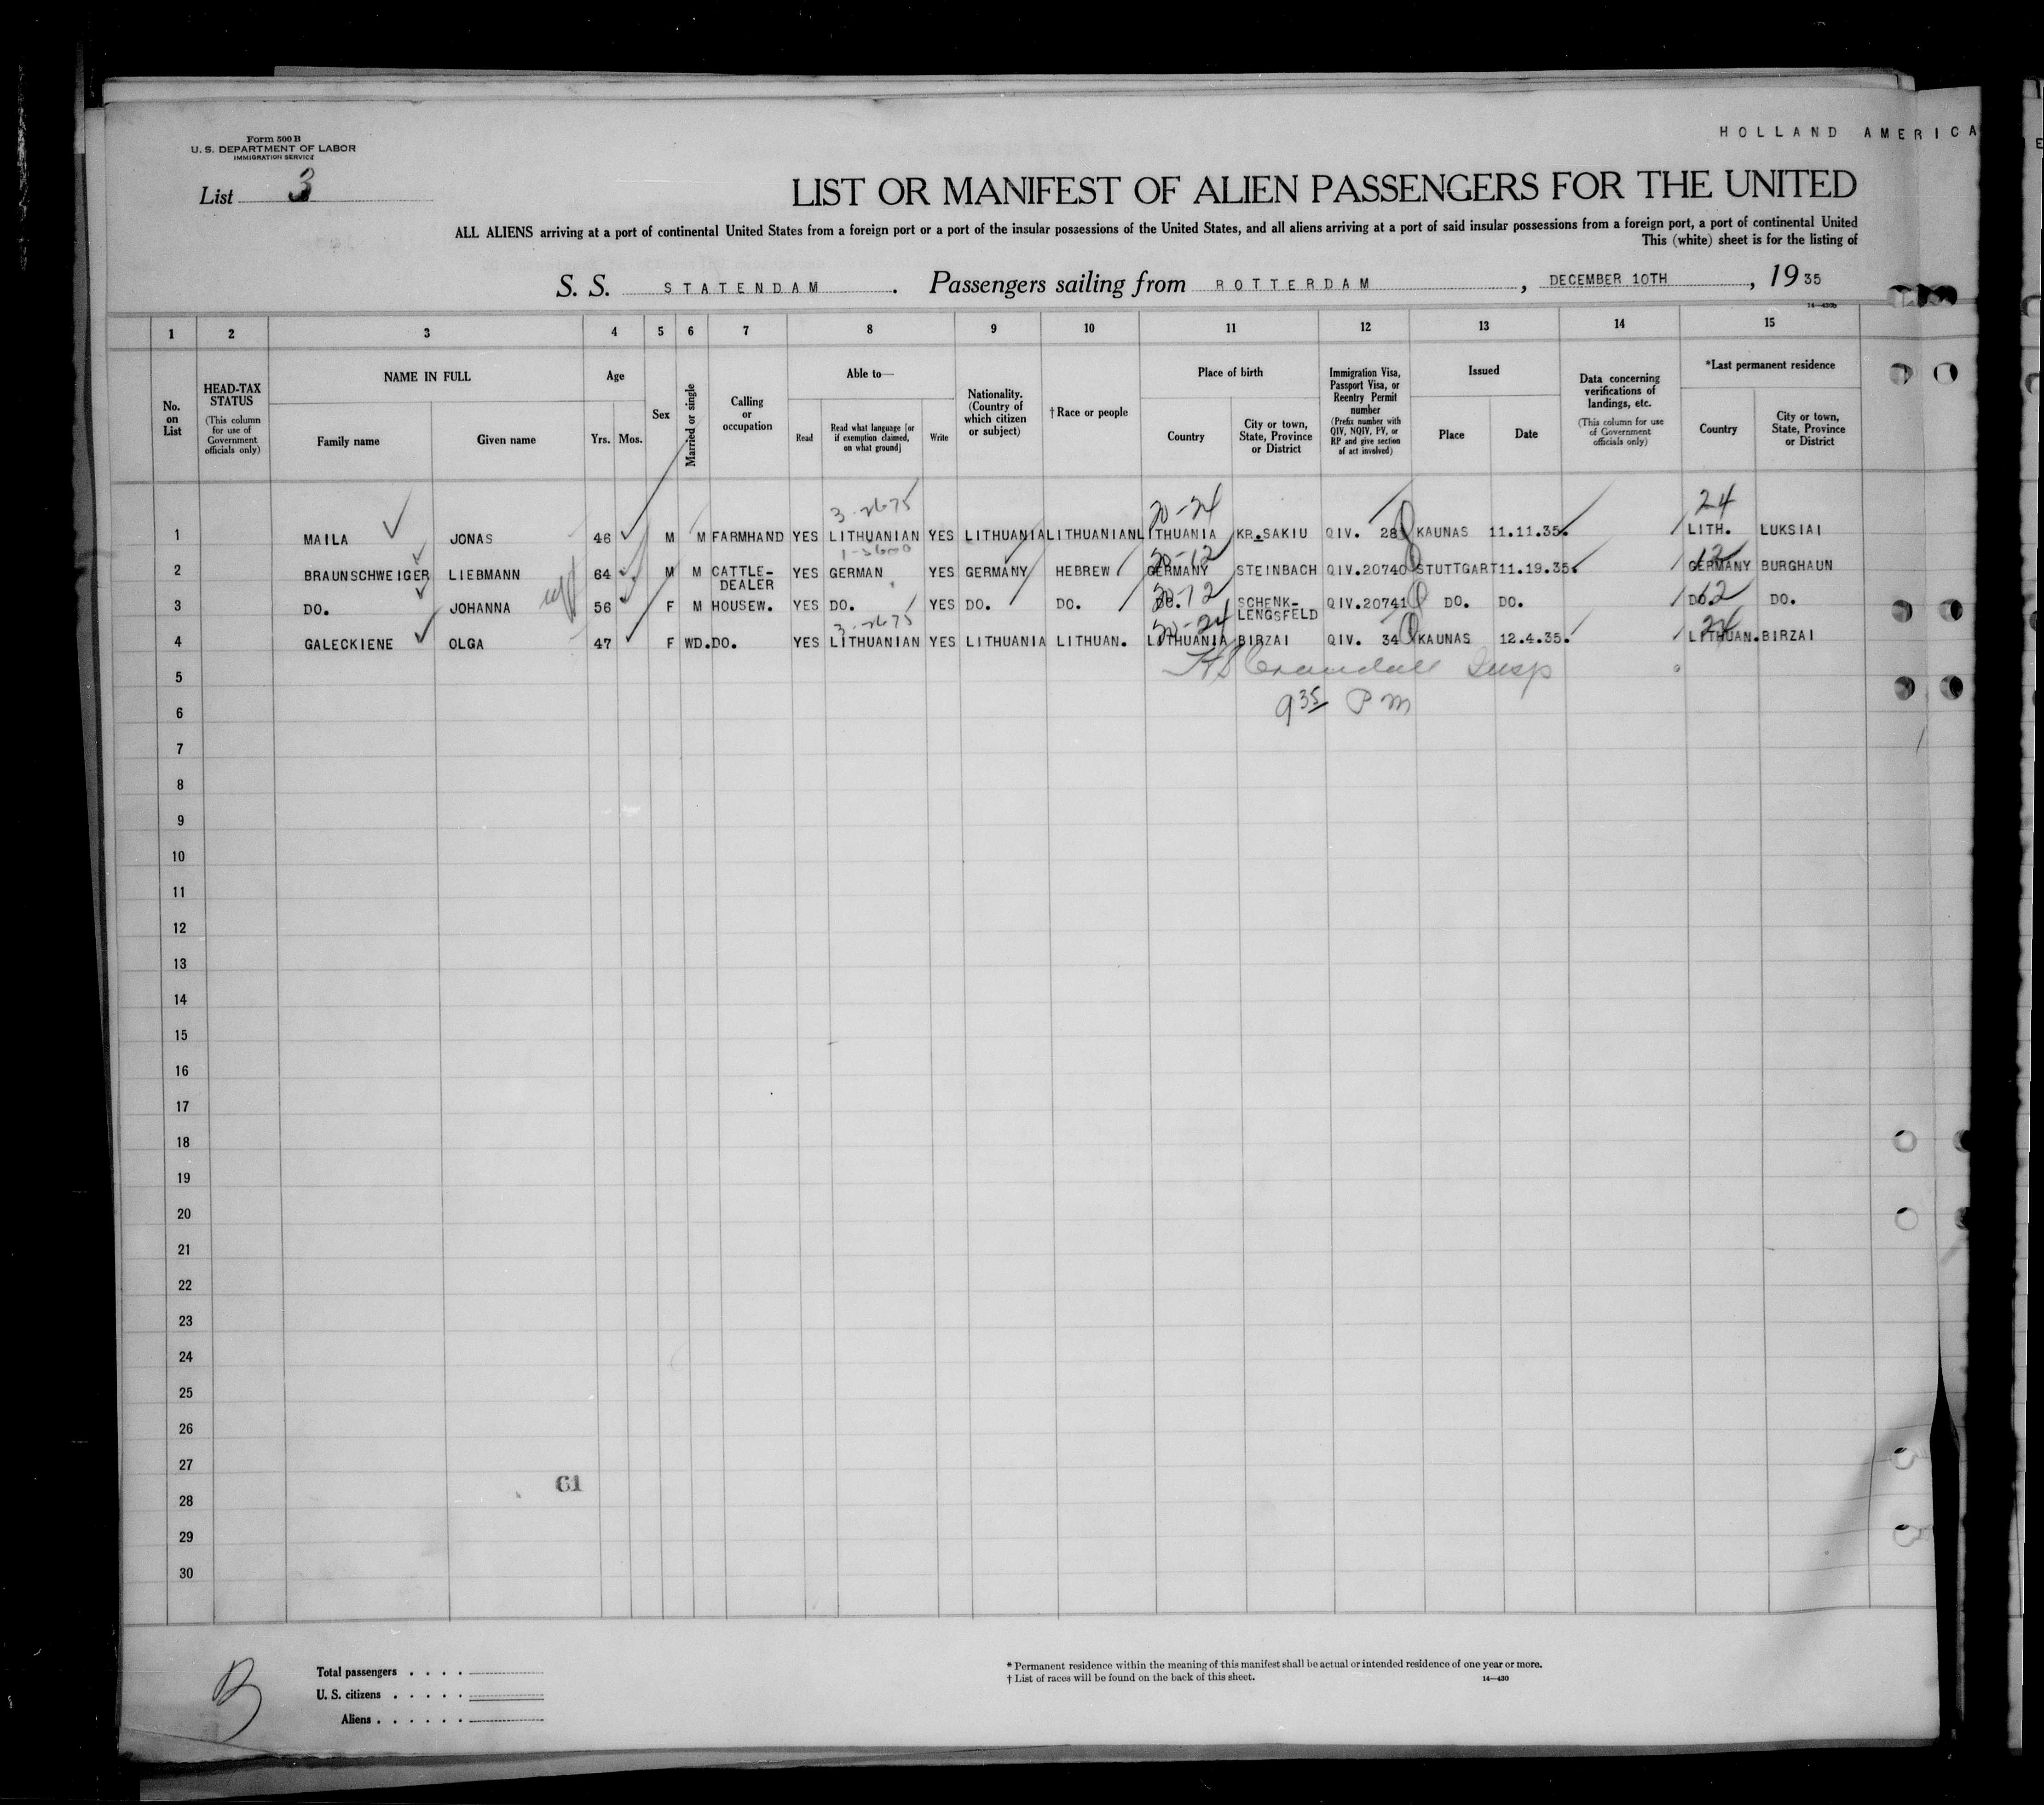 HOLLAND AMERICA
Form 500 B
U. S. DEPARTMENT OF LABOR
IMMIGRATION SERVICE
List 3
LIST OR MANIFEST OF ALIEN PASSENGERS FOR THE UNITED
ALL ALIENS arriving at a port of continental United States from a foreign port or a port of the insular possessions of the United States, and all aliens arriving at a port of said insular possessions from a foreign port, a port of continental United
This (white) sheet is for the listing of
S. S. STATENDAM. Passengers sailing from ROTTERDAM, DECEMBER 10TH, 1935
14—430b
1 2 3 4 5 6 7 8 9 10 11 12 13 14 15
No. on List
HEAD-TAX STATUS (This column for use of Government officials only)
NAME IN FULL
Family name Given name
Age
Yrs. Mos.
Sex
Married or single
Calling or occupation
Able to—
Read
Read what language [or if exemption claimed, on what ground]
Write
Nationality. (Country of which citizen or subject)
†Race or people
Place of birth
Country
City or town, State, Province or District
Immigration Visa, Passport Visa, or Reentry Permit number (Prefix number with QIV, NQIV, PV, or RP and give section of act involved)
Issued
Place Date
Data concerning verifications of landings, etc. (This column for use of Government officials only)
*Last permanent residence
Country
City or town, State, Province or District
3-2675 20-24 24
1 MAILA JONAS 46 M M FARMHAND YES LITHUANIAN YES LITHUANIA LITHUANIAN LITHUANIA KR.SAKIU QIV. 28 KAUNAS 11.11.35. LITH. LUKSIAI
20-12 12
2 BRAUNSCHWEIGER LIEBMANN 64 M M CATTLE-DEALER YES GERMAN YES GERMANY HEBREW GERMANY STEINBACH QIV.20740 STUTTGART 11.19.35. GERMANY BURGHAUN
20-12 12
3 DO. JOHANNA 56 F M HOUSEW. YES DO. YES DO. DO. DO. SCHENK-LENGSFELD QIV.20741 DO. DO. DO. DO.
3-2675 20-24 24
4 GALECKIENE OLGA 47 F WD. DO. YES LITHUANIAN YES LITHUANIA LITHUAN. LITHUANIA BIRZAI QIV. 34 KAUNAS 12.4.35. LITHUAN. BIRZAI
5 Crandall Insp
6 9 35 PM
7
8
9
10
11
12
13
14
15
16
17
18
19
20
21
22
23
24
25
26
27
61
28
29
30
B
Total passengers . . . .
U. S. citizens . . . . .
Aliens . . . . . .
* Permanent residence within the meaning of this manifest shall be actual or intended residence of one year or more.
† List of races will be found on the back of this sheet. 14—430